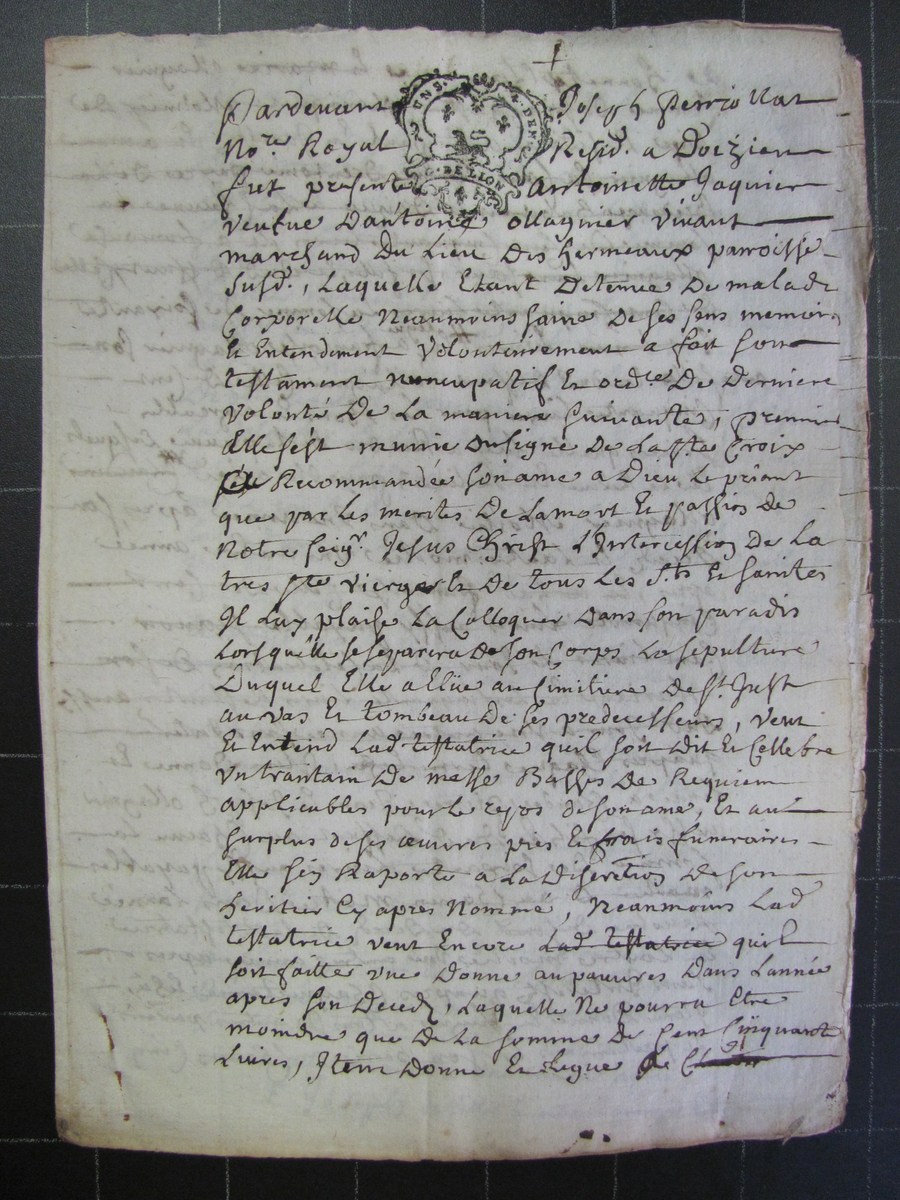 +
Pardevant Joseph Perriollat
UN S. 4. DEN.
No.re Royal Resid. a Doizieu
G. DE LION
fut presente Antoinette Jaquier
veufue Dantoine ollagnier vivant
marchand Du Lieu Des hermeaux parroisse
Susd., Laquelle Etant Detenue De maladie
Corporelle Neanmoins saine De ses sens memoire
Et Entendement Volontairement a fait son
testament nuncupatif Et ord.re De Derniere
volonté De La maniere suivante, premier
Elle sést munie du signe De La s.te Croix
Recommandée son ame a Dieu Le priant
que par Les merites De La mort Et passion de
Notre seig.r Jesus Christ L'Intercession De La
tres s.te vierge Et De tous Les S.ts Et saintes
Il Luy plaise La Colloquer Dans son paradis
Lorsquélle se separera De son Corps La sepulture
Duquel Elle a Elüe au Cimitiere De S.t Just
au vas Et tombeau De ses predecesseurs, veut
Et Entend Lad. testatrice quil soit Dit Et Cellebre
un trantain De messe Basses De Requiem
applicables pour Le repos de son ame, Et au
surplus de ses œuvres pies Et frais funeraires
Elle sén Raporte a La Discretion De son
heritier Cy apres Nommé, Neanmoins Lad.
testatrice veut Encore Lad. testatrice quil
soit faitte une Donne au pauvres Dans Lannée
apres son Deced, Laquelle Ne pourra Etre
moindre que De La somme De Cent Cinquante
Livres, Item Donne Et Legue